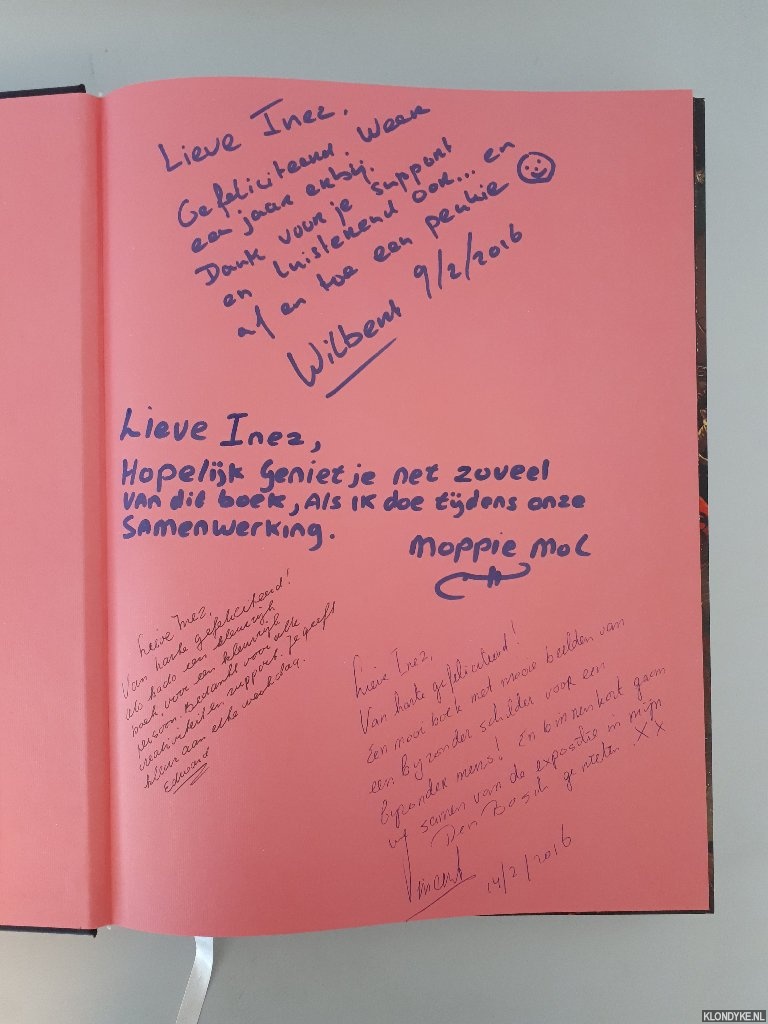 Lieve Inez,
Gefeliciteerd. Weer
een jaar erbij.
Dank voor je support
en luisterend oor... en
af en toe een peukie ☺
Wilbert 9/2/2016
Lieve Inez,
Hopelijk geniet je net zoveel
van dit boek, als ik doe tijdens onze
samenwerking.
Moppie Mol
Lieve Inez,
Van harte gefeliciteerd!
Als kado een kleurrijk
boek, voor een kleurrijk
persoon. Bedankt voor alle
creativiteit en support. Je geeft
kleur aan elke werkdag.
Edward
Lieve Inez,
Van harte gefeliciteerd!
Een mooi boek met mooie beelden van
een bijzonder schilder voor een
bijzonder mens! En binnenkort gaan
wij samen van de expositie in mijn
Den Bosch genieten. XX
Vincent 14/2/2016
KLONDYKE.NL